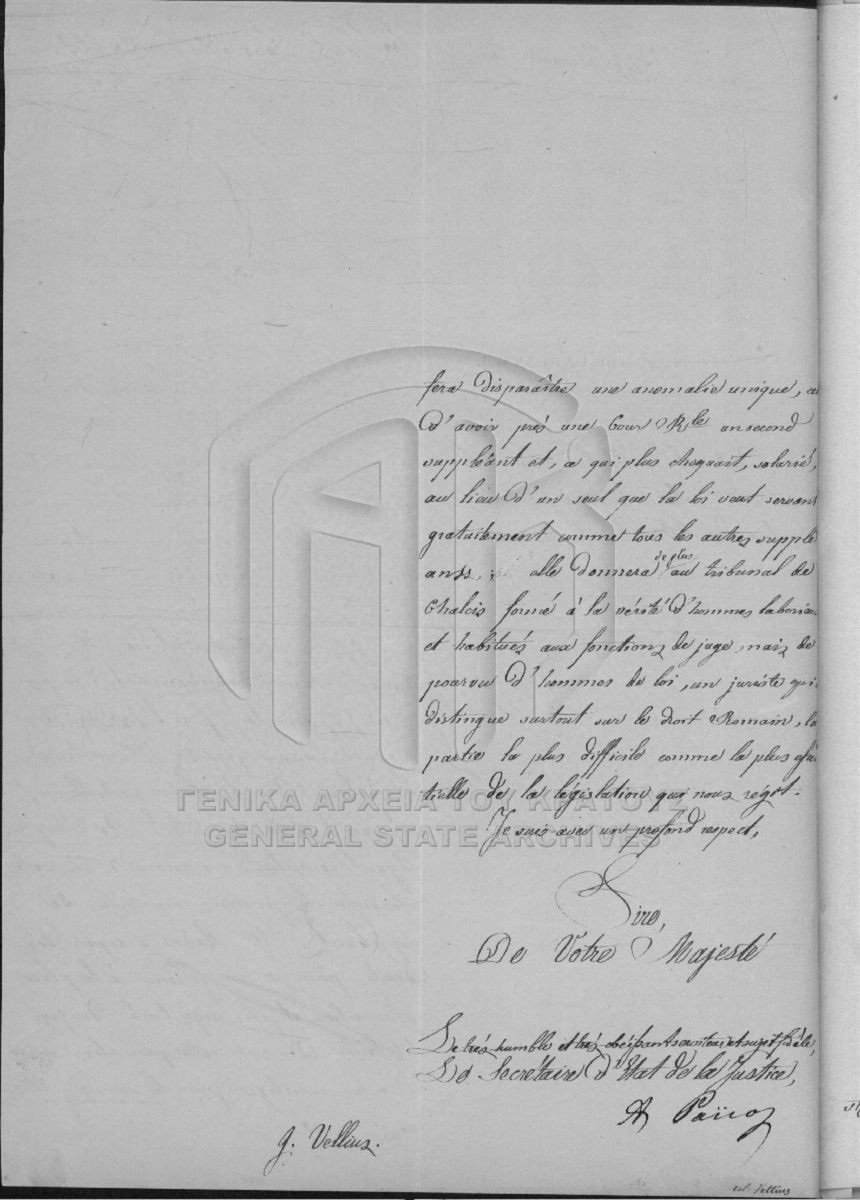 fera disparaître une anomalie unique,
d'avoir prés une Cour Rle un second
suppléant et, ce qui plus choquait, salarié,
au lieu d'un seul que la loi veut servant
gratuitement comme tous les autres supplé
ans; elle donnera de plus au tribunal de
Chalcis formé à la vérité d'hommes
et habitués aux fonctions de juge mais de
pourvu d'hommes de loi, un juriste qui
distingue surtout sur le droit Romain, la
partie la plus difficile comme la plus
tielle de la législation qui nous régit.
Je suis avec un profond respect,
Sire,
De Votre Majesté
Le très humble et très obéissant serviteur et sujet fidèle,
Le Secrétaire d'Etat de la Justice,
A Païcos
G. Vellius.
ΓΕΝΙΚΑ ΑΡΧΕΙΑ ΤΟΥ ΚΡΑΤΟΥΣ
GENERAL STATE ARCHIVES
Vellius